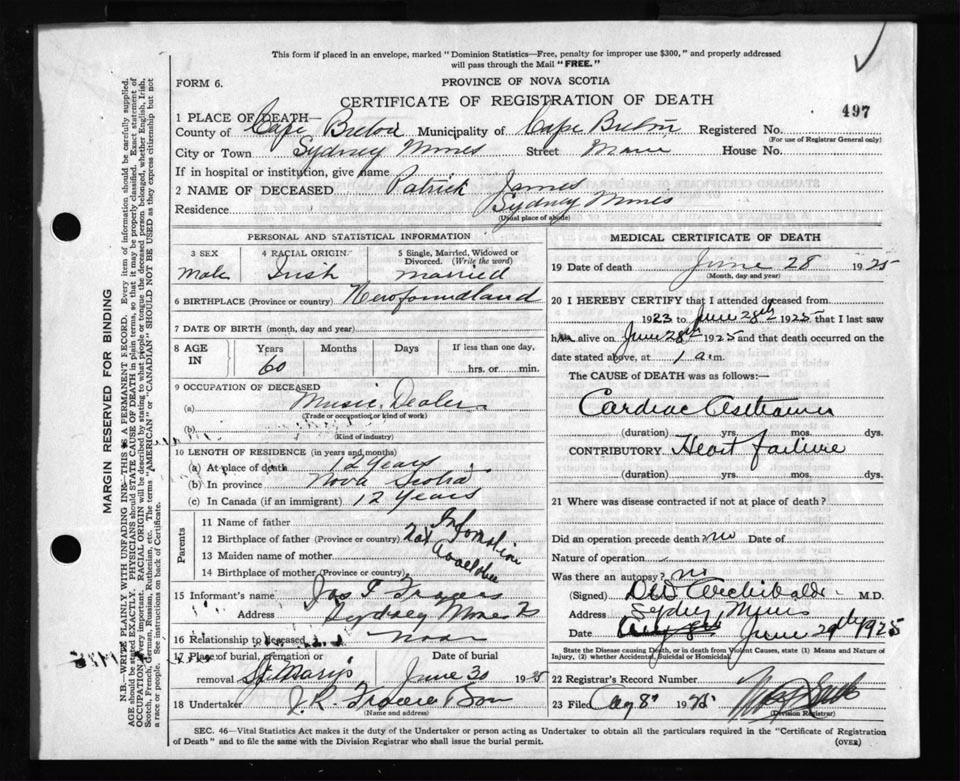 This form if placed in an envelope, marked "Dominion Statistics—Free, penalty for improper use $300," and properly addressed
will pass through the Mail "FREE."
FORM 6.
PROVINCE OF NOVA SCOTIA
CERTIFICATE OF REGISTRATION OF DEATH
497
1 PLACE OF DEATH—
County of Cape Breton Municipality of Cape Breton Registered No.
(For use of Registrar General only)
City or Town Sydney Mines Street Main House No.
If in hospital or institution, give name
2 NAME OF DECEASED Patrick James
Residence Sydney Mines
(Usual place of abode)
PERSONAL AND STATISTICAL INFORMATION
3 SEX 4 RACIAL ORIGIN 5 Single, Married, Widowed or
Divorced. (Write the word)
Male Irish married
6 BIRTHPLACE (Province or country) Newfoundland
7 DATE OF BIRTH (month, day and year)
8 AGE IN Years Months Days If less than one day,
60 hrs. or min.
9 OCCUPATION OF DECEASED
(a) Music Dealer
(Trade or occupation or kind of work)
(b)
(Kind of industry)
10 LENGTH OF RESIDENCE (in years and months)
(a) At place of death 12 Years
(b) In province Nova Scotia
(c) In Canada (if an immigrant) 12 Years
Parents
11 Name of father
12 Birthplace of father (Province or country)
13 Maiden name of mother
14 Birthplace of mother (Province or country)
Not Information
15 Informant's name Jas
Address Sydney Mines
16 Relationship to deceased
17 Place of burial, cremation or Date of burial
removal St Mary's June 30 1925
18 Undertaker J. R.
(Name and address)
MEDICAL CERTIFICATE OF DEATH
19 Date of death June 28 1925
(Month, day and year)
20 I HEREBY CERTIFY that I attended deceased from
1923 to June 28th 1925 that I last saw
him alive on June 28th 1925 and that death occurred on the
date stated above, at 1 a.m.
The CAUSE of DEATH was as follows:—
Cardiac
(duration) yrs. mos. dys.
CONTRIBUTORY Heart failure
(duration) yrs. mos. dys.
21 Where was disease contracted if not at place of death?
Did an operation precede death no Date of
Nature of operation
Was there an autopsy? no
(Signed) Archibald M.D.
Address Sydney Mines
Date June 29th 1925
State the Disease causing Death, or in death from Violent Causes, state (1) Means and Nature of
Injury, (2) whether Accidental, Suicidal or Homicidal.
22 Registrar's Record Number
23 Filed Aug 8 1925
(Division Registrar)
SEC. 46—Vital Statistics Act makes it the duty of the Undertaker or person acting as Undertaker to obtain all the particulars required in the "Certificate of Registration
of Death" and to file the same with the Division Registrar who shall issue the burial permit. (OVER)
MARGIN RESERVED FOR BINDING
N.B.—WRITE PLAINLY WITH UNFADING INK—THIS IS A PERMANENT RECORD. Every item of information should be carefully supplied.
AGE should be stated EXACTLY. PHYSICIANS should STATE CAUSE OF DEATH in plain terms, so that it may be properly classified. Exact statement of
OCCUPATION is very important. RACIAL ORIGIN will be described by stating to what people or tongue the deceased person belonged, whether English, Irish,
Scotch, French, German, Russian, Ruthenian, etc. The terms "AMERICAN" or "CANADIAN" SHOULD NOT BE USED as they express citizenship but not
a race or people. See instructions on back of Certificate.